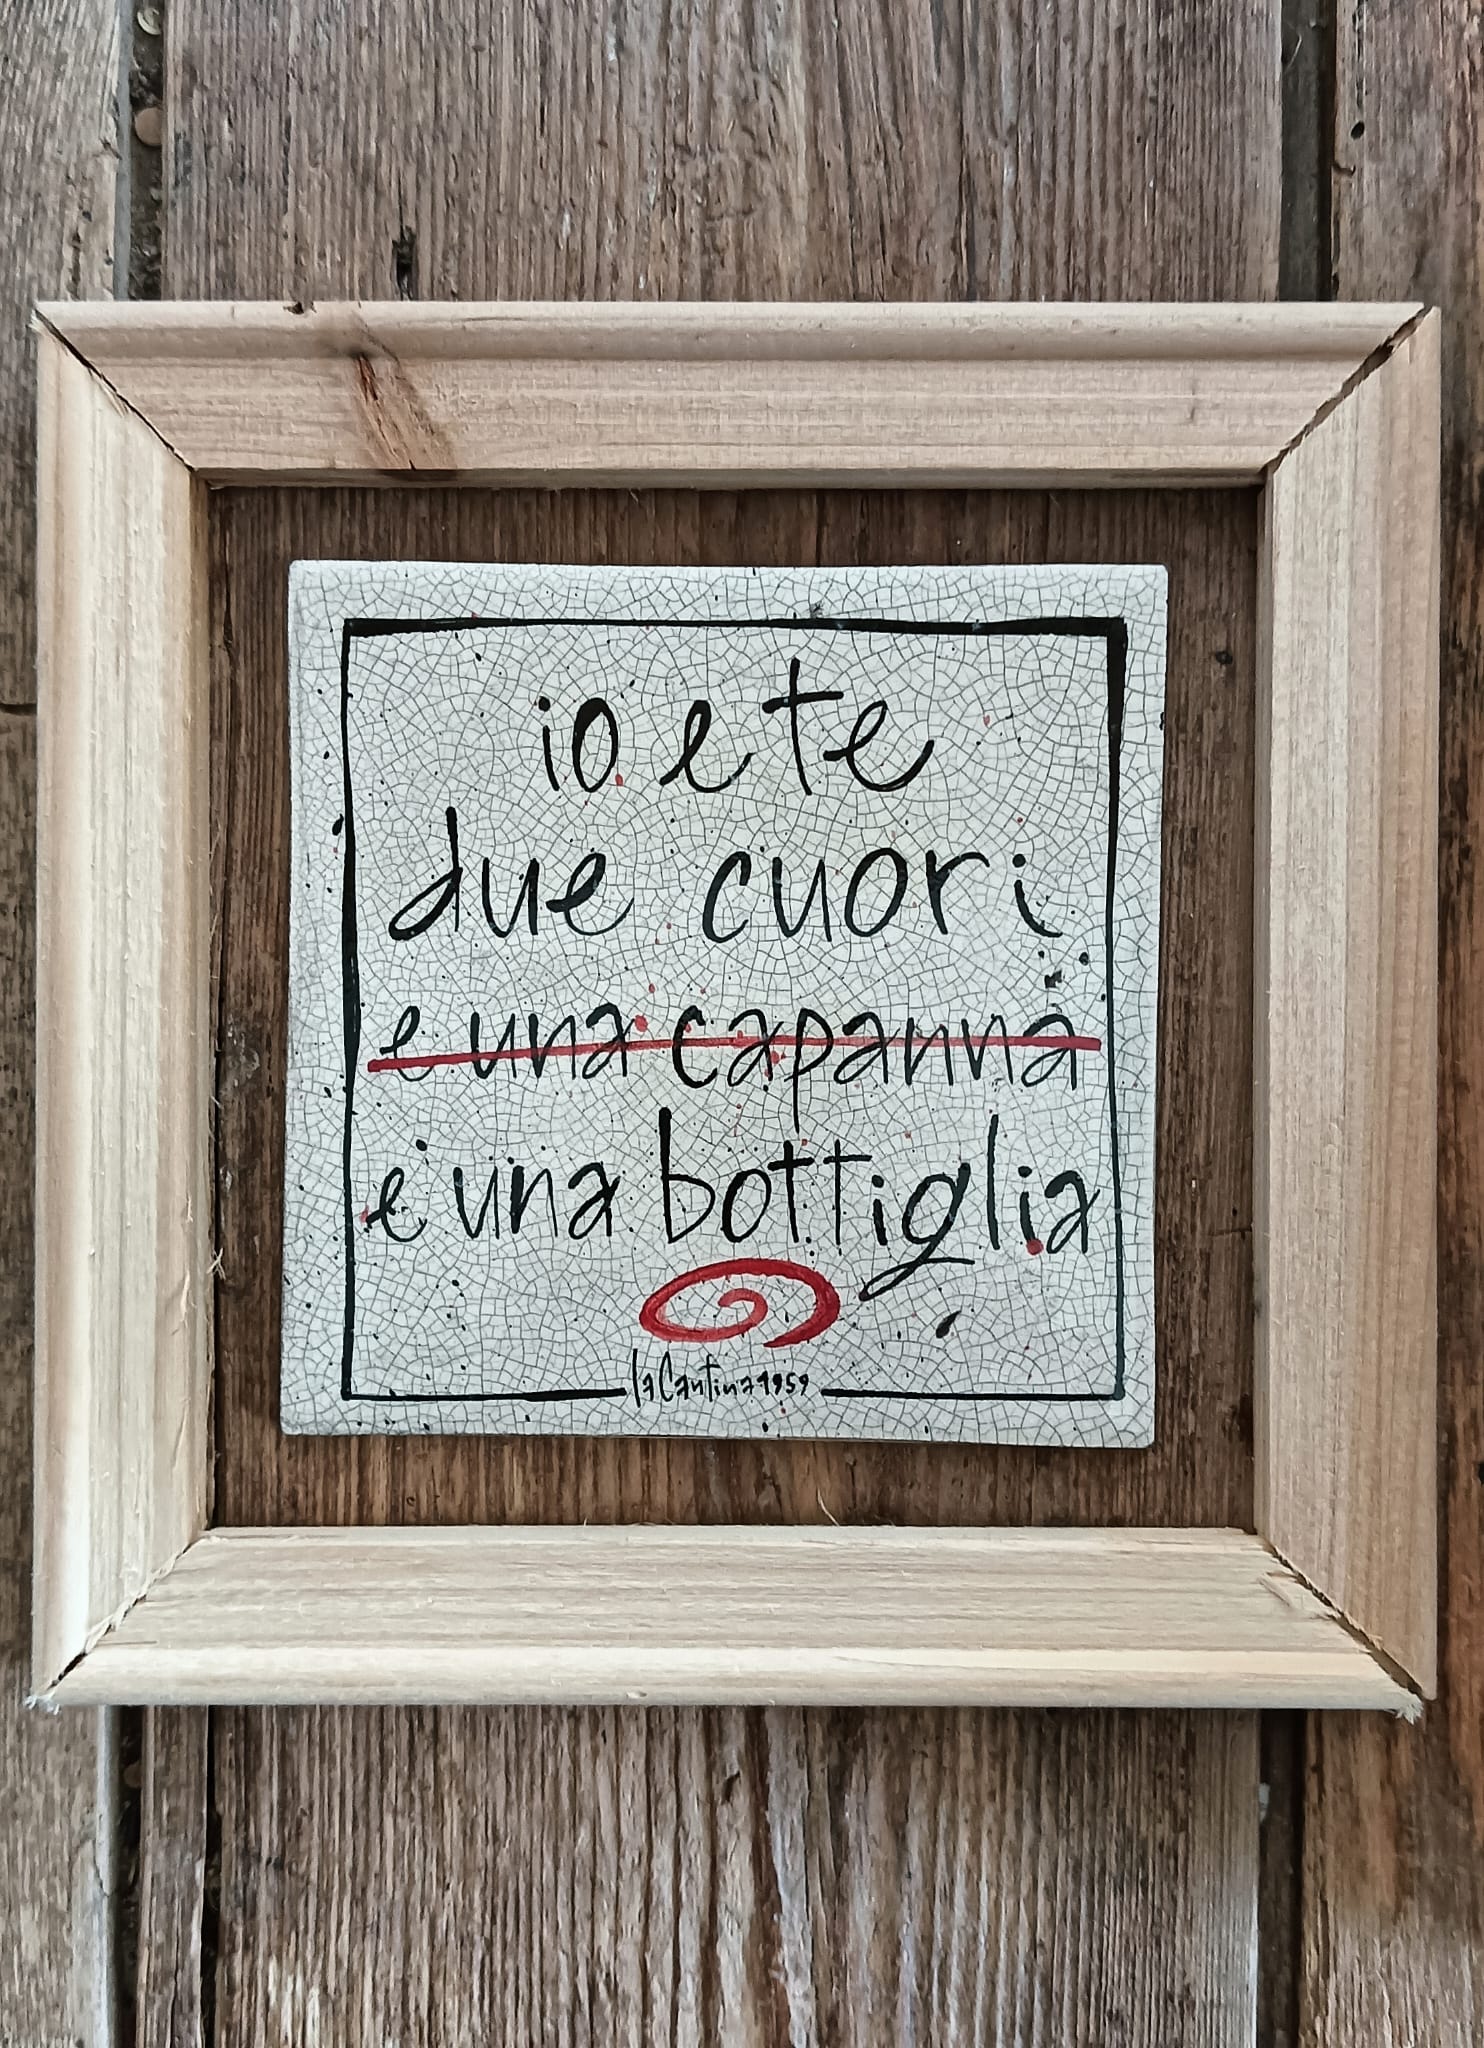 io e te
due cuori
e una capanna
e una bottiglia
la Cantina 1959